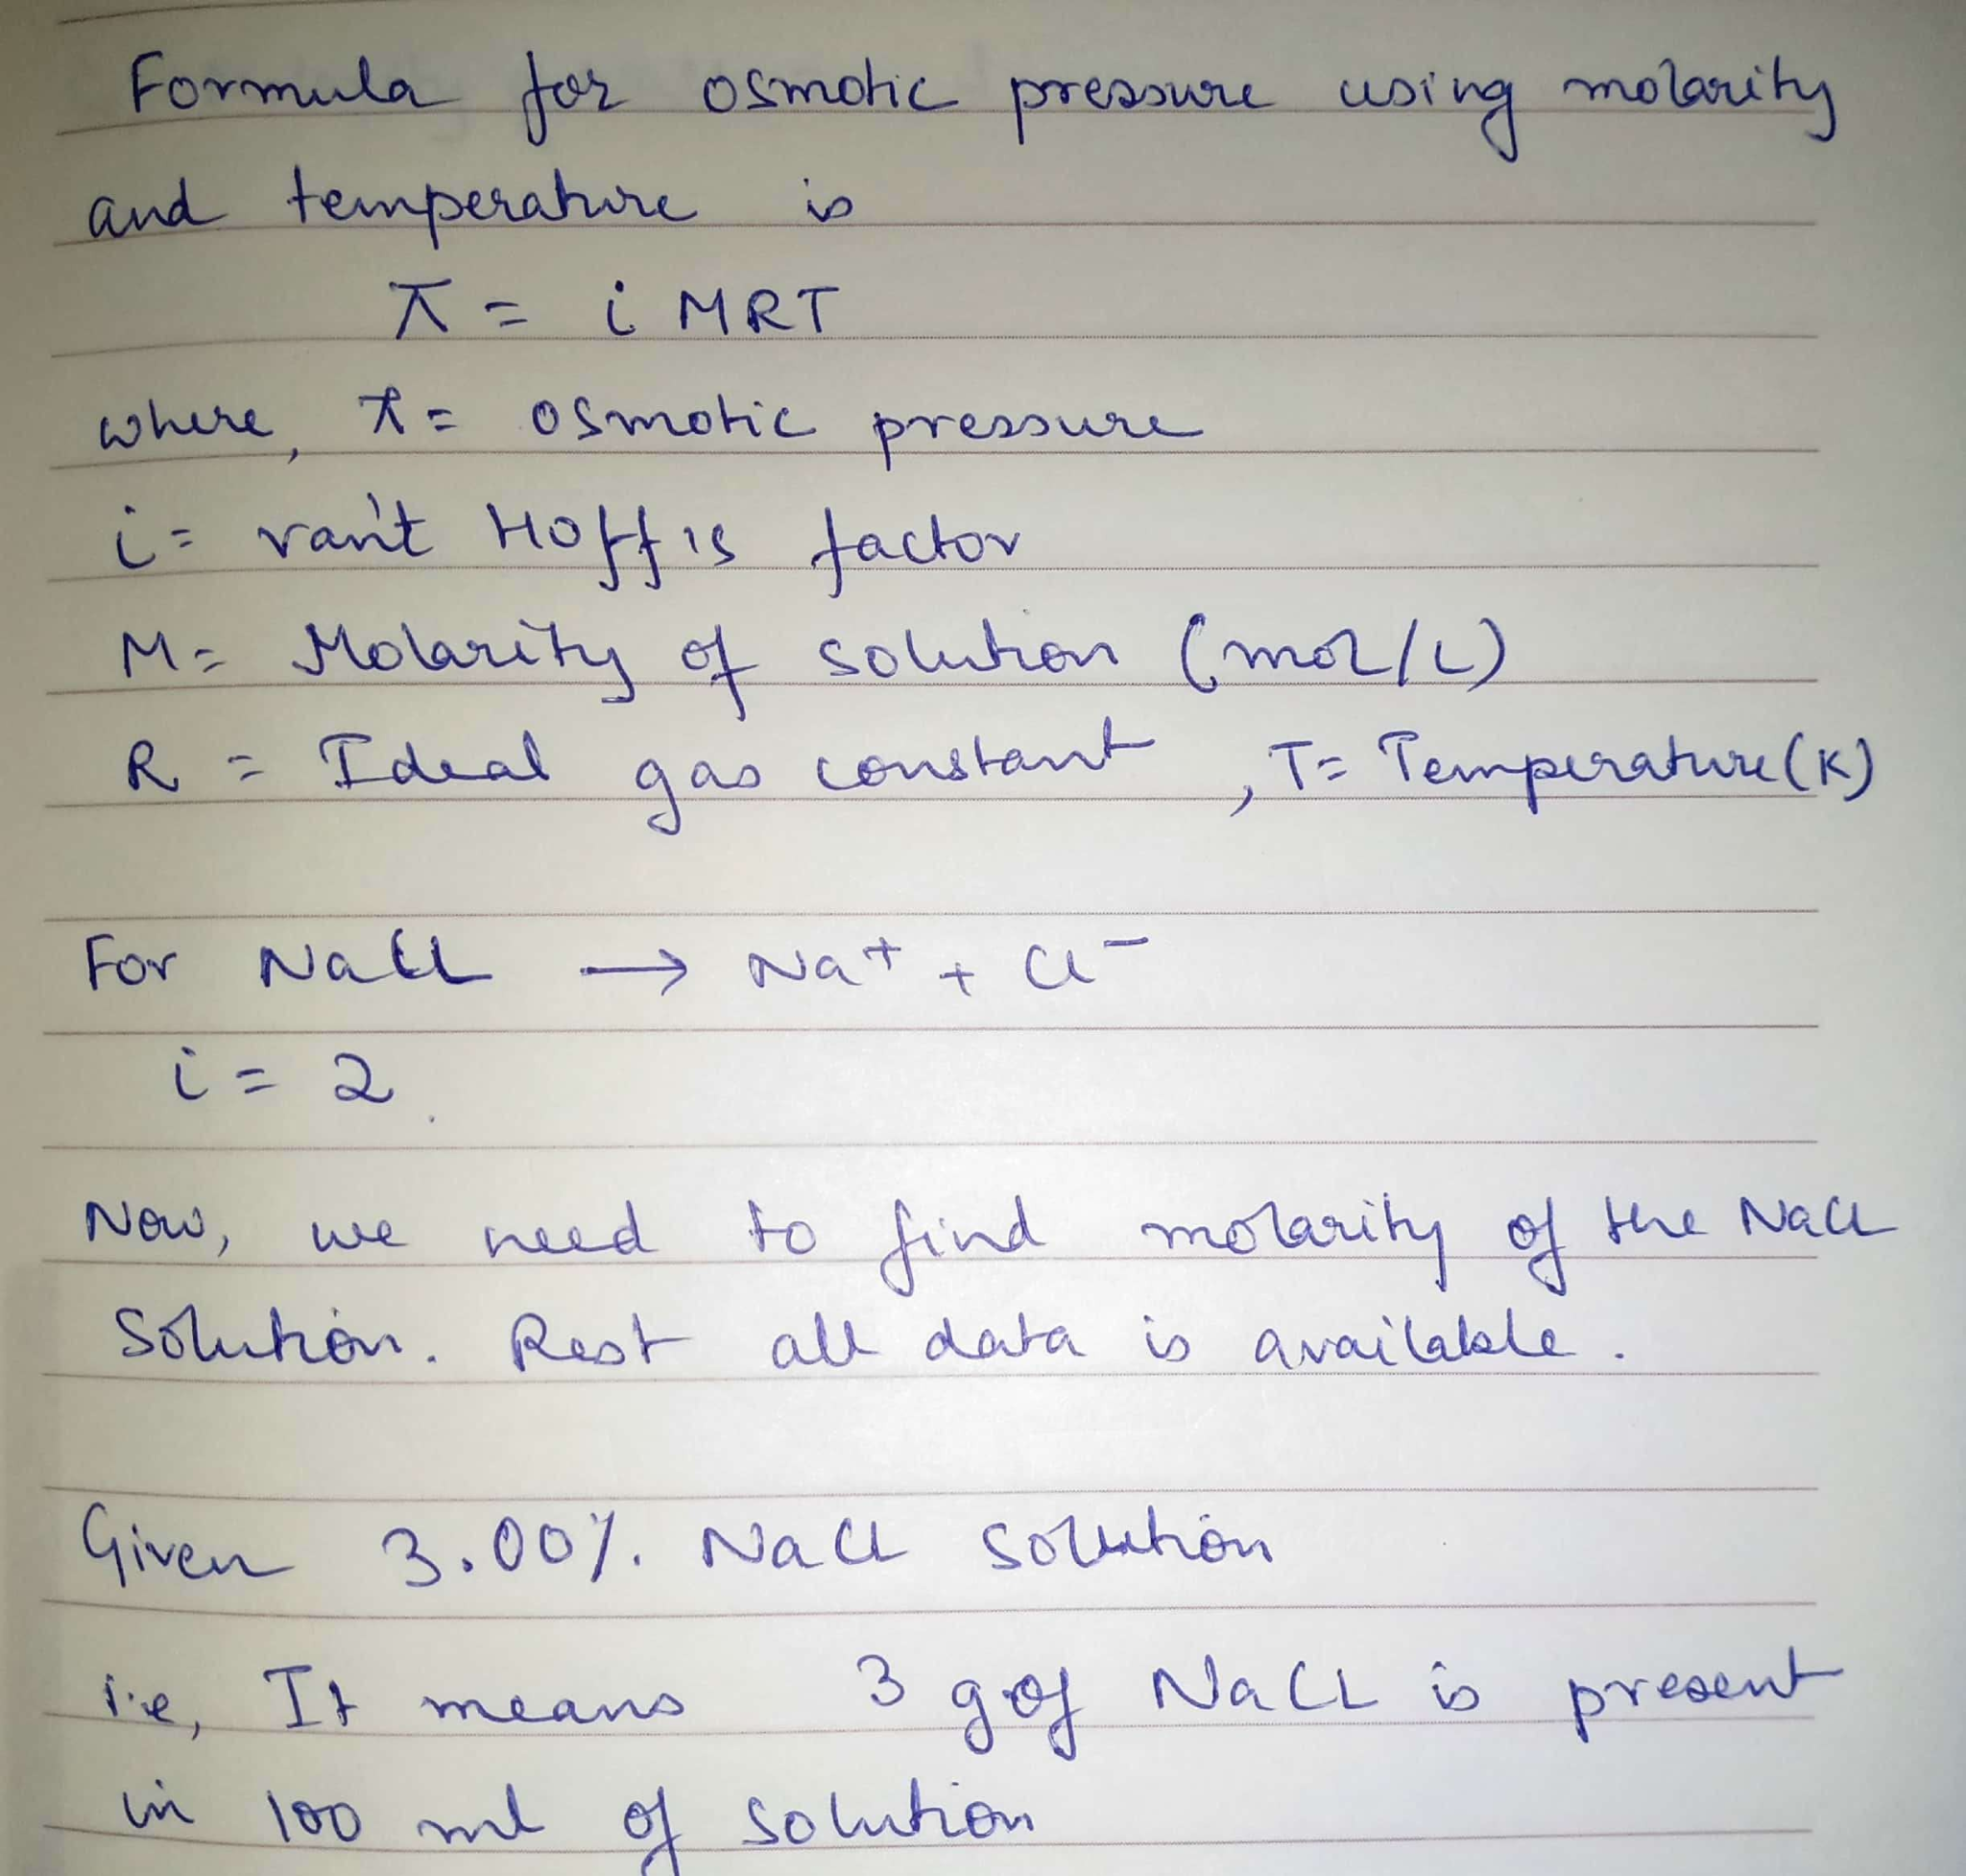 Formula for osmotic pressure using molarity
and temperature is
π = i MRT
where, π = osmotic pressure
i = van't Hoff's factor
M = Molarity of solution (mol/L)
R = Ideal gas constant, T = Temperature(K)
For NaCl → Na⁺ + Cl⁻
i = 2.
Now, we need to find molarity of the NaCl
Solution. Rest all data is available.
Given 3.00% NaCl solution
i.e, It means 3 g of NaCl is present
in 100 ml of solution